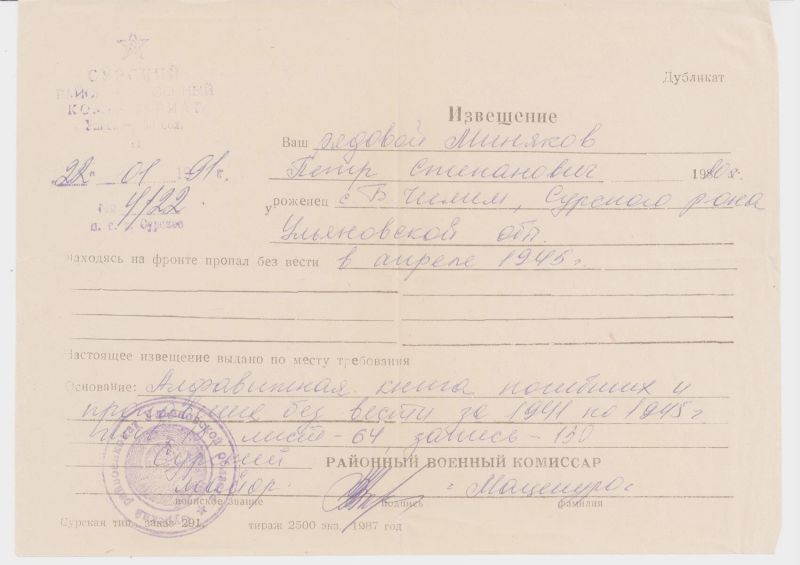 СУРСКИЙ
РАЙОННЫЙ ВОЕННЫЙ
КОМИССАРИАТ
Ульяновской обл.
Дубликат
Извещение
„22“ 01 1991 г.
№ 4/22
п. с. Сурское
Ваш рядовой Миняков
Петр Степанович 19
уроженец с Б Чилим, Сурского р-она
Ульяновской обл.
Находясь на фронте пропал без вести в апреле 1945 г
Настоящее извещение выдано по месту требования
Основание: Алфавитная книга погибших и
пропавшие без вести за 1941 по 1945 г
лист-64, запись-130
Сурский РАЙОННЫЙ ВОЕННЫЙ КОМИССАР
майор.
воинское звание подпись фамилия
Сурская тип. заказ 291, тираж 2500 экз. 1987 год